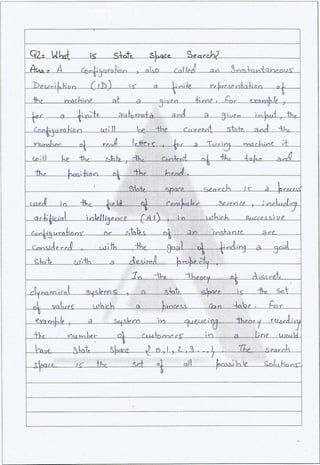 Q2= What is State Space Search?
Ans = A Configuration, also called an Instantaneous
Description (ID) is a finite representation of
the machine at a given time. For example,
for a finite automata and a given input, the
Configuration will be the current state and the
number of read letters, for a Turing machine it
will be the state, the content of the tape and
the position of the head.
State space search is a process
used in the field of Computer Science, including
artificial intelligence (AI), in which successive
Configurations or states of an instance are
Considered, with the goal of finding a goal
State with a desired property.
In the Theory of discrete
dynamical systems, a state space is the set
of values which a process can take. For
example, a system in queueing theory recording
the number of customers in a line would
have state space {0,1,2,3...} The search
space is the set of all possible solutions.